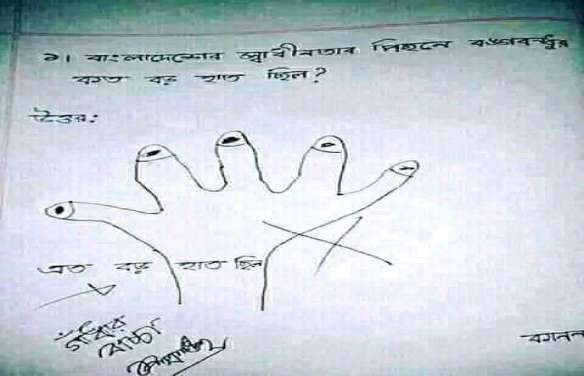 ১। বাংলাদেশের স্বাধীনতার পিছনে বঙ্গবন্ধুর
কত বড় হাত ছিল?
উত্তর:
এত বড় হাত ছিল
গাঁধার
বাচ্চা